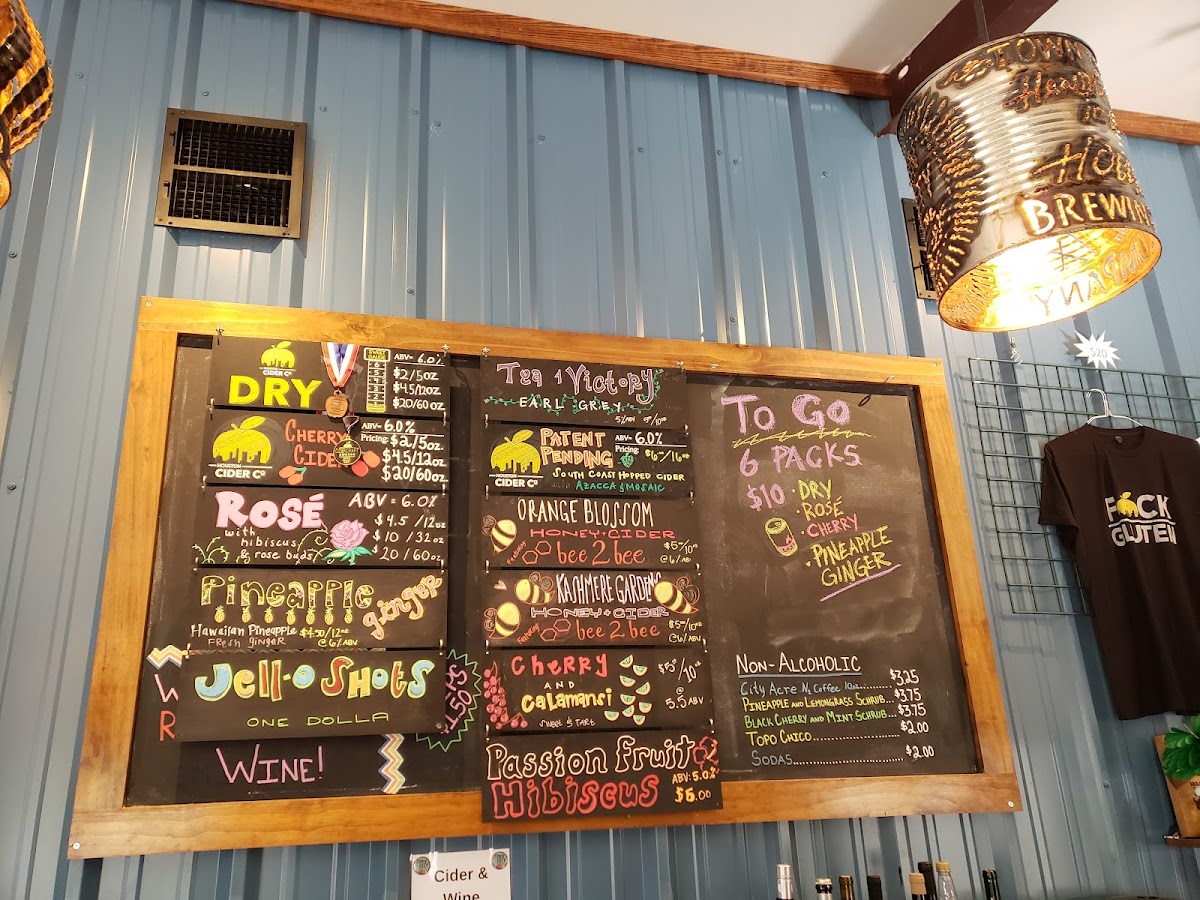 CIDER Co
DRY
ABV= 6.0%
$2/5oz
$4.5/12oz
$20/60oz
HOUSTON
CIDER Co
CHERRY
CIDER
ABV= 6.0%
Pricing: $2/5oz
$4.5/12oz
$20/60oz
ROSÉ
with
hibiscus
& rose buds
ABV = 6.0%
$4.5 /12oz
$10 /32oz
$20/60oz
Pineapple
ginger
Hawaiian Pineapple
Fresh Ginger
$4.50/12oz
@6%ABV
Jell-o Shots
ONE DOLLA
W
R
WINE!
Tea 4 Victory
EARL GREY
HOUSTON
CIDER Co
PATENT
PENDING
ABV= 6.0%
Pricing:
$6/16oz
SOUTH COAST HOPPED CIDER
with AZACCA & MOSAIC
ORANGE BLOSSOM
HONEY+CIDER
Featuring
bee 2 bee
$5/10oz
@6%ABV
KASHMERE GARDENS
HONEY+CIDER
Featuring
bee 2 bee
$5/10oz
@6%ABV
Cherry
AND
Calamansi
SWEET & TART
$5/10oz
@
5.5 ABV
Passion Fruit
Hibiscus
ABV: 5.0%
$5.00
To Go
6 PACKS
$10
• DRY
• ROSÉ
• CHERRY
• PINEAPPLE
GINGER
NON-ALCOHOLIC
City Acre N2 Coffee 10oz.........$3.25
PINEAPPLE AND LEMONGRASS SCHRUB...$3.75
BLACK CHERRY AND MINT SCHRUB...$3.75
TOPO CHICO...............$2.00
SODAS...............$2.00
TOWN
HOU
BREWIN
MPANY
$20
F CK
GLUTEN
Cider &
Wine